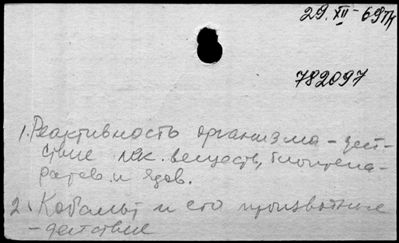 29.XII-69тк
782097
1. Реактивность организма - дей-
ствие лек. веществ, биопрепа-
ратов и ядов.
2. Кобальт и его производные
- действие